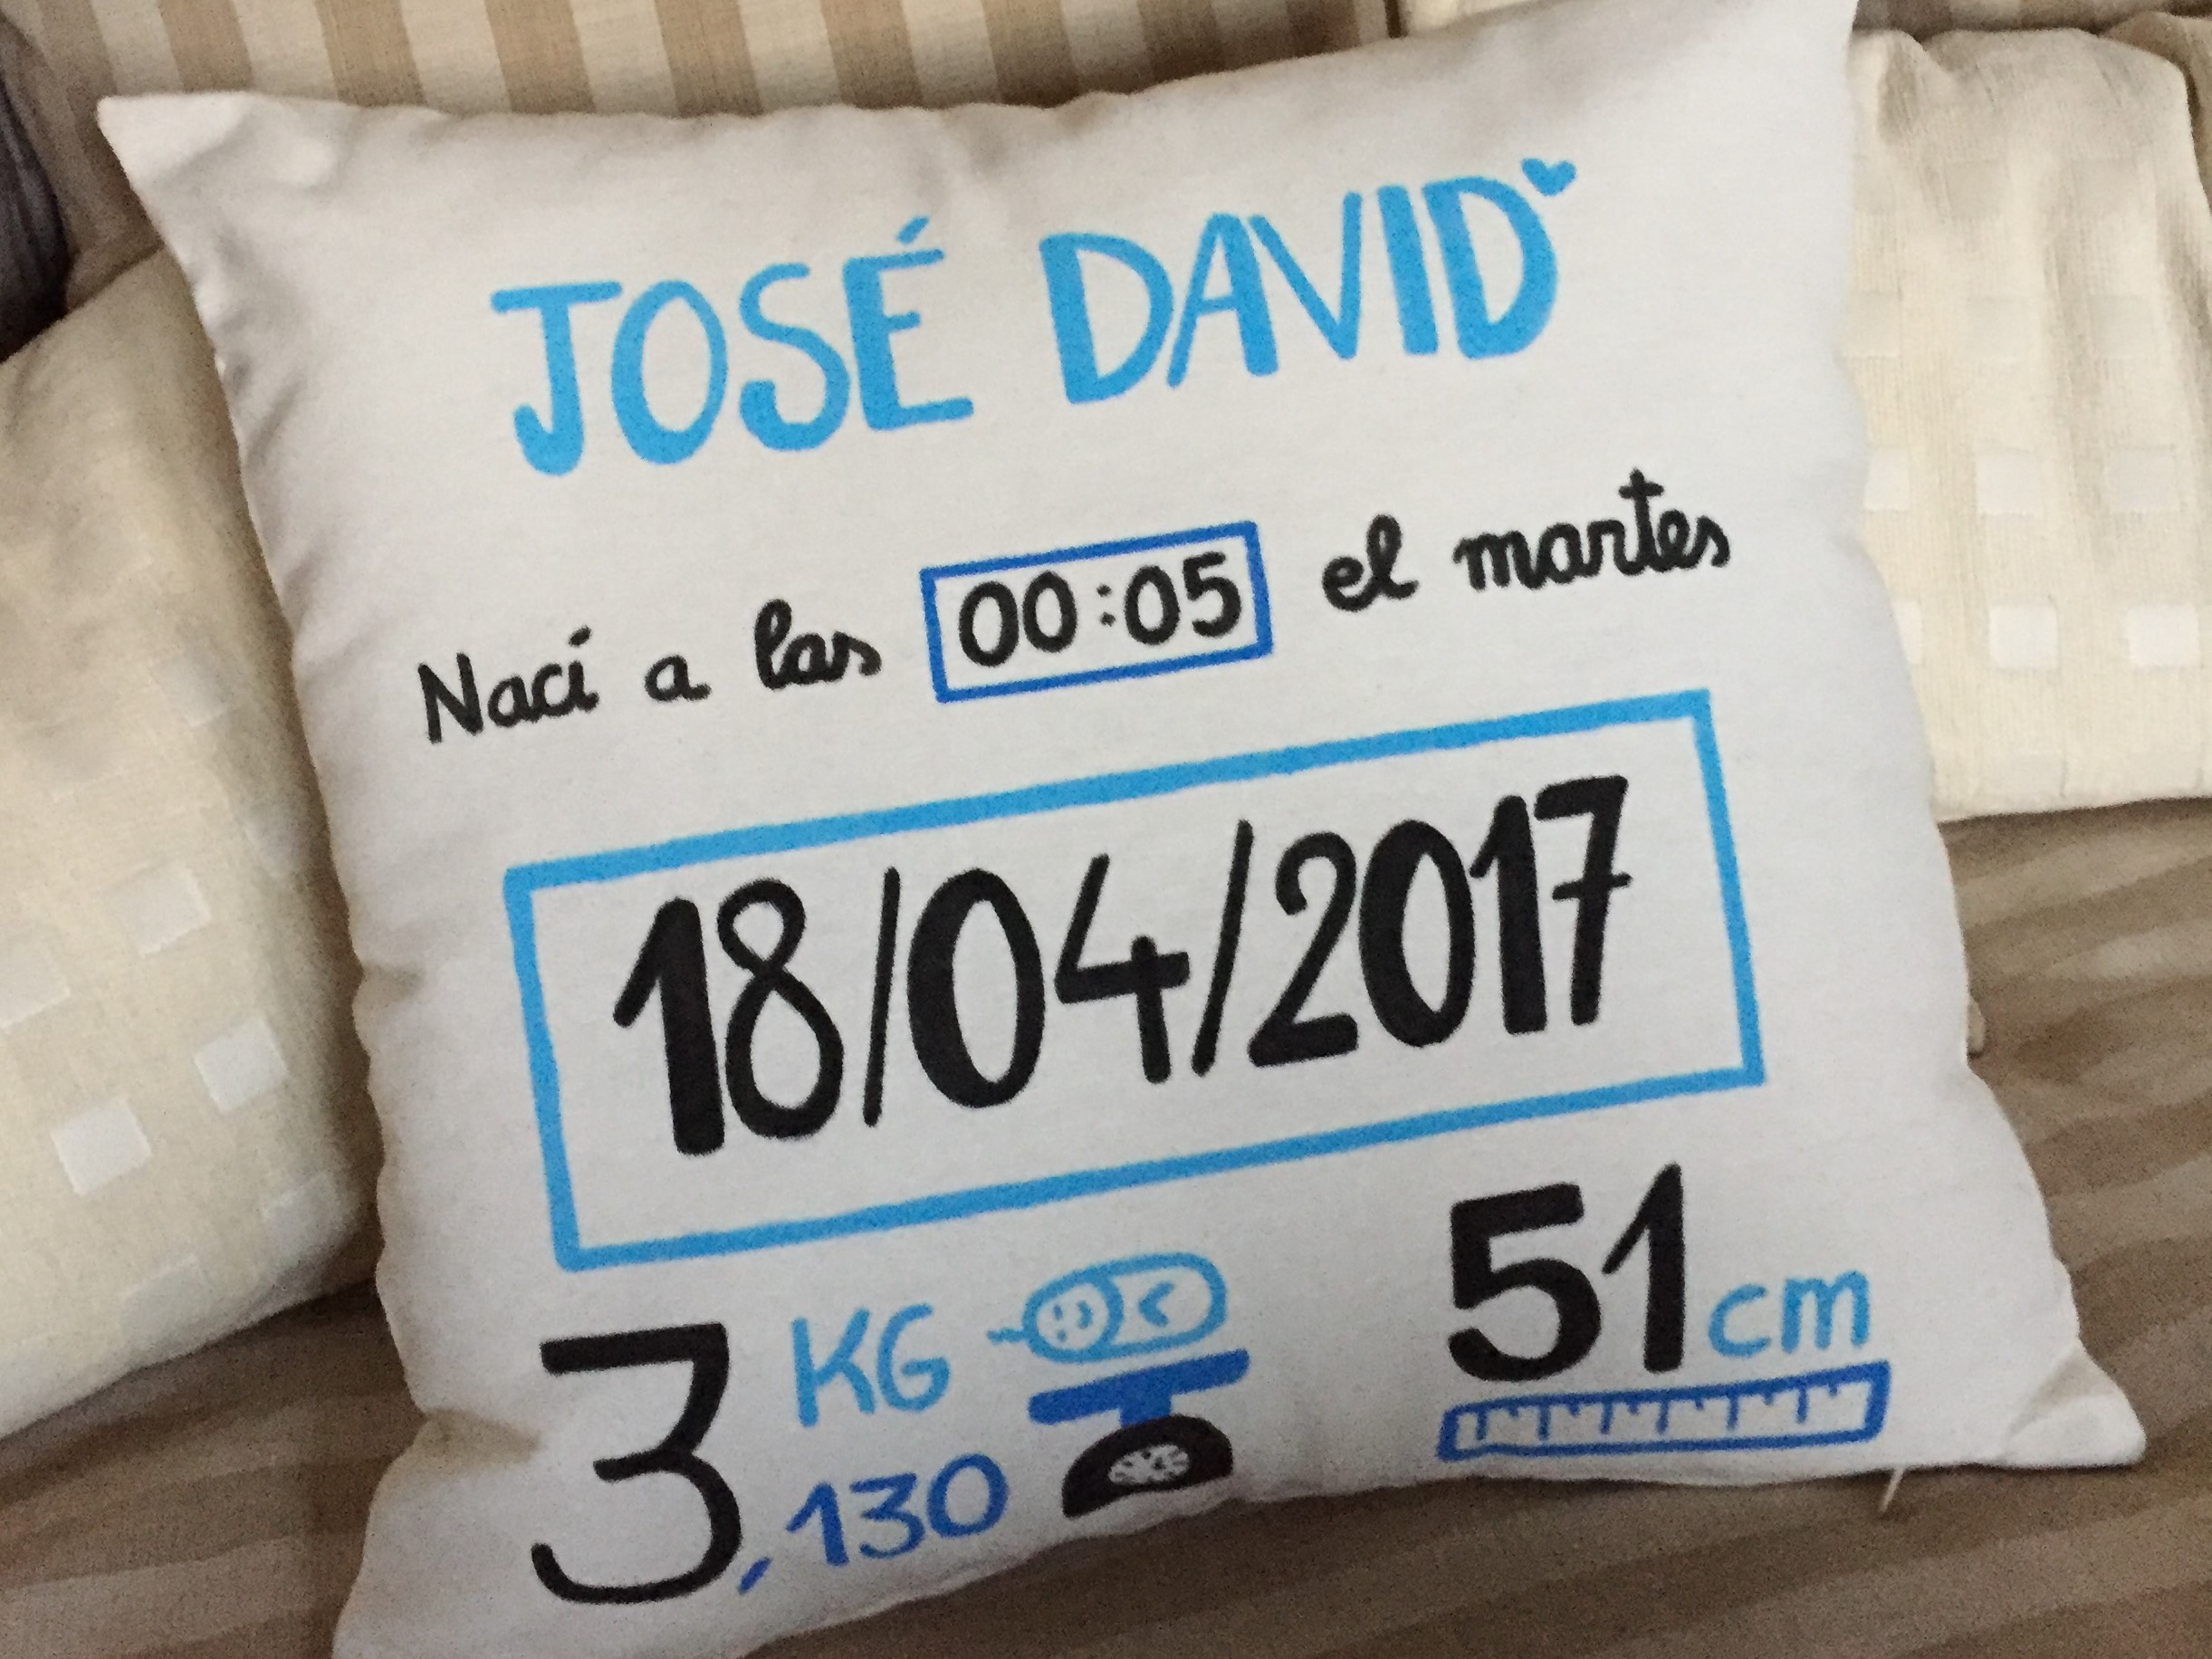 JOSÉ DAVID
Nací a las 00:05 el martes
18/04/2017
3,130 KG
51 cm